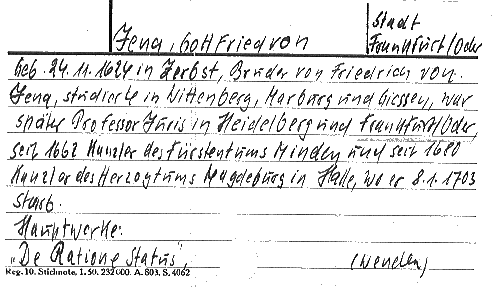 Jena, Gottfried von
Stadt
Frankfurt/Oder
Geb. 24.11.1624 in Zerbst, Bruder von Friedrich von
Jena, studierte in Wittenberg, Marburg und Giessen, war
später Professor Juris in Heidelberg und Frankfurt/Oder,
seit 1662 Kanzler des Fürstentums Minden und seit 1680
Kanzler des Herzogtums Magdeburg in Halle, wo er 8.1.1703
starb.
Hauptwerke:
„De Ratione Status",
(wenden)
Reg. 10. Stichnote. 1. 50. 232000. A. 803. S. 4062